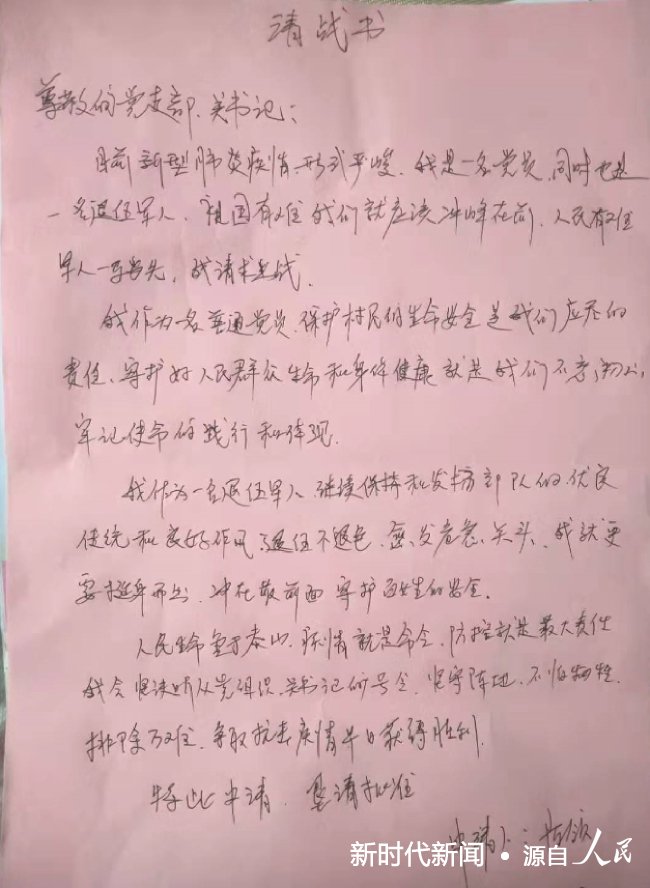 请战书
尊敬的党支部、关书记：
目前新型肺炎疫情形式严峻，我是一名党员，同时也是
一名退伍军人，祖国有难我们就应该冲峰在前，人民有难
军人一马当先，我请求出战。
我作为一名普通党员，保护村民的生命安全是我们应尽的
责任、守护好人民群众生命和身体健康就是我们不忘初心，
牢记使命的践行和体现。
我作为一名退伍军人，继续保持和发扬部队的优良
传统和良好作风，退伍不退色，愈发危急关头，我就更
要挺身而出，冲在最前面守护百姓的安全。
人民生命重于泰山，疫情就是命令，防控就是最大责任
我会坚决听从党组织、关书记的号令，坚守阵地，不怕牺牲，
排除万难，争取抗击疫情早日获得胜利。
特此申请，恳请批准
申请人：
新时代新闻·源自人民